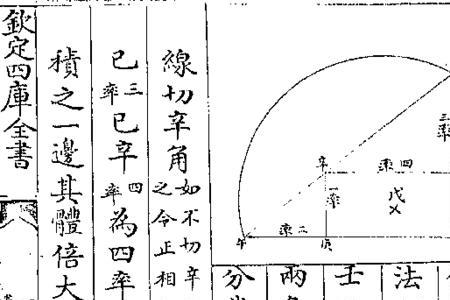 三率
四率
辛
一率
戊
二率
庚
午
法
壬
兩
分
線切辛角如不切辛之令正相
已三率已辛四率為四率
積之一邊其體倍大
欽定四庫全書